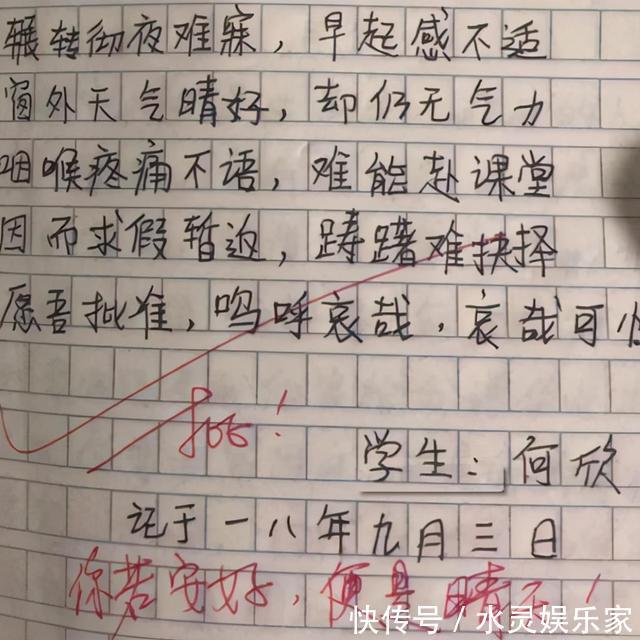 辗转彻夜难寐，早起感不适
窗外天气晴好，却仍无气力
咽喉疼痛不语，难能赴课堂
因而求假暂返，踌躇难抉择
愿吾批准，呜呼哀哉，哀哉可
批！
学生：何欣
记于一八年九月三日
你若安好，便是晴天！
快传号／水灵娱乐家